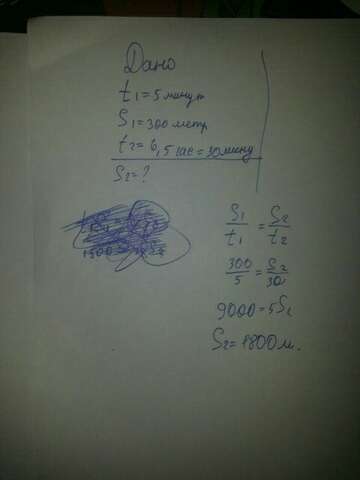 Дано
t1 = 5 минут
S1 = 300 метр
t2 = 0,5 час = 30 мину
S2 = ?
S1/t1 = S2/t2
300/5 = S2/30
9000 = 5S2
S2 = 1800 м.